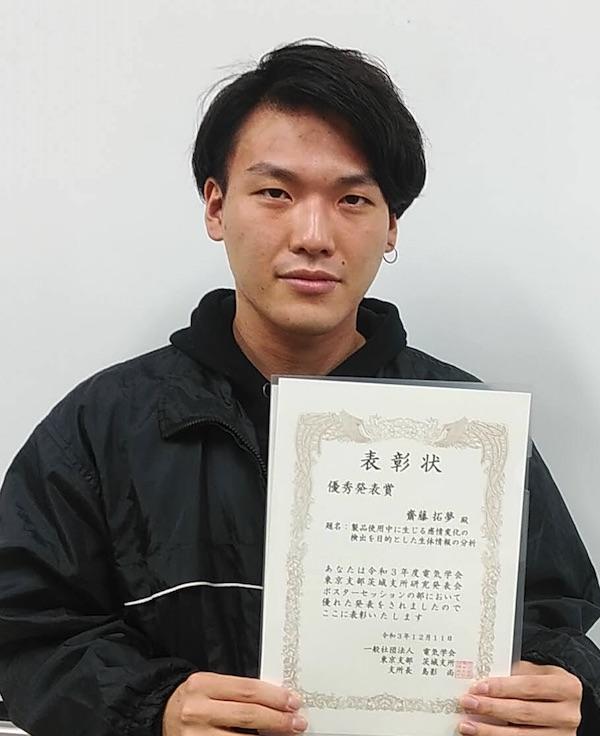 表彰状
優秀発表賞
齋藤 拓夢 殿
題名：製品使用中に生じる感情変化の
検出を目的とした生体情報の分析
あなたは令和３年度電気学会
東京支部茨城支所研究発表会
ポスターセッションの部において
優れた発表をされましたので
ここに表彰いたします
令和３年１２月１１日
一般社団法人 電気学会
東京支部 茨城支所
支所長 島影 尚